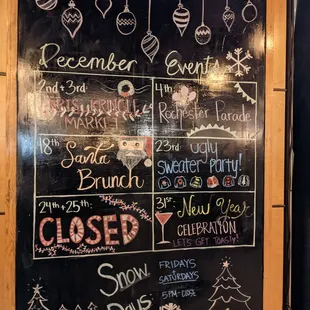 December Events
2nd + 3rd:
KRIS KRINGLE
MARKET
4th:
Rochester Parade
18th:
Santa
Brunch
23rd:
ugly
sweater party!
24th + 25th:
CLOSED
31st:
New Year
CELEBRATION
LET'S GET TOASTY!
Snow
Days
FRIDAYS
SATURDAYS
5PM - CLOSE